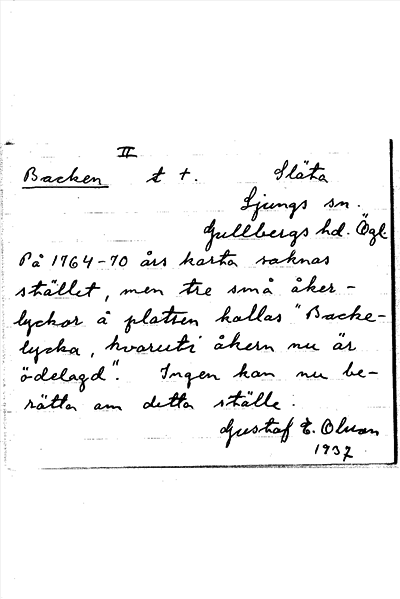 II
Backen t †. Släta
Ljungs sn.
Gullbergs hd. Ögl.
På 1764-70 års karta saknas
stället, men tre små åker-
lyckor å platsen kallas "Backe-
lycka, hvaruti åkern nu är
ödelagd". Ingen kan nu be-
rätta om detta ställe.
Gustaf E. Olsson
1937